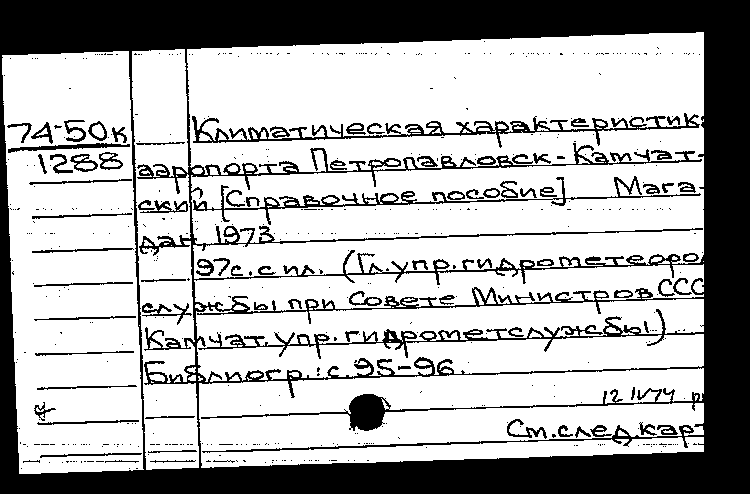 74-50к Климатическая характеристика
1288 аэропорта Петропавловск-Камчат-
ский. [Справочное пособие]. Мага-
дан, 1973.
97с. с ил. (Гл. упр. гидрометеорол
службы при Совете Министров ССС
Камчат. упр. гидрометслужбы)
Библиогр.: с. 95-96.
12 IV 74
См. след. карт